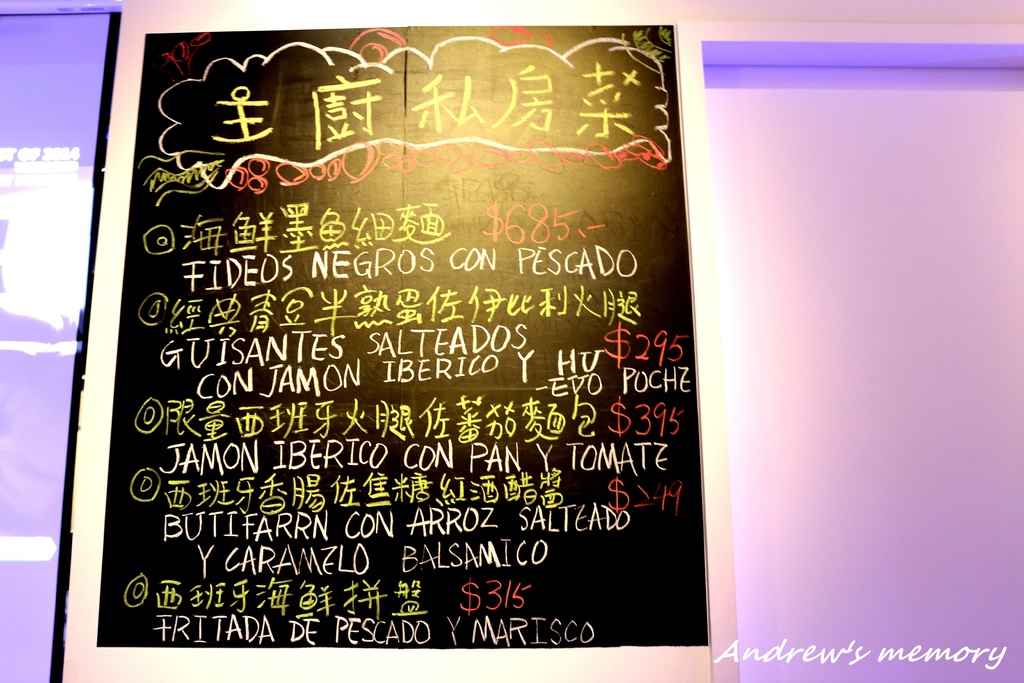 主廚私房菜
海鮮墨魚細麵 $685.-
FIDEOS NEGROS CON PESCADO
經典青豆半熟蛋佐伊比利火腿
GUISANTES SALTEADOS $295
CON JAMON IBERICO Y HU-EVO POCHE
限量西班牙火腿佐蕃茄麵包 $395
JAMON IBERICO CON PAN Y TOMATE
西班牙香腸佐焦糖紅酒醋醬 $249
BUTIFARRN CON ARROZ SALTEADO
Y CARAMELO BALSAMICO
西班牙海鮮拼盤 $315
FRITADA DE PESCADO Y MARISCO
Andrew's memory